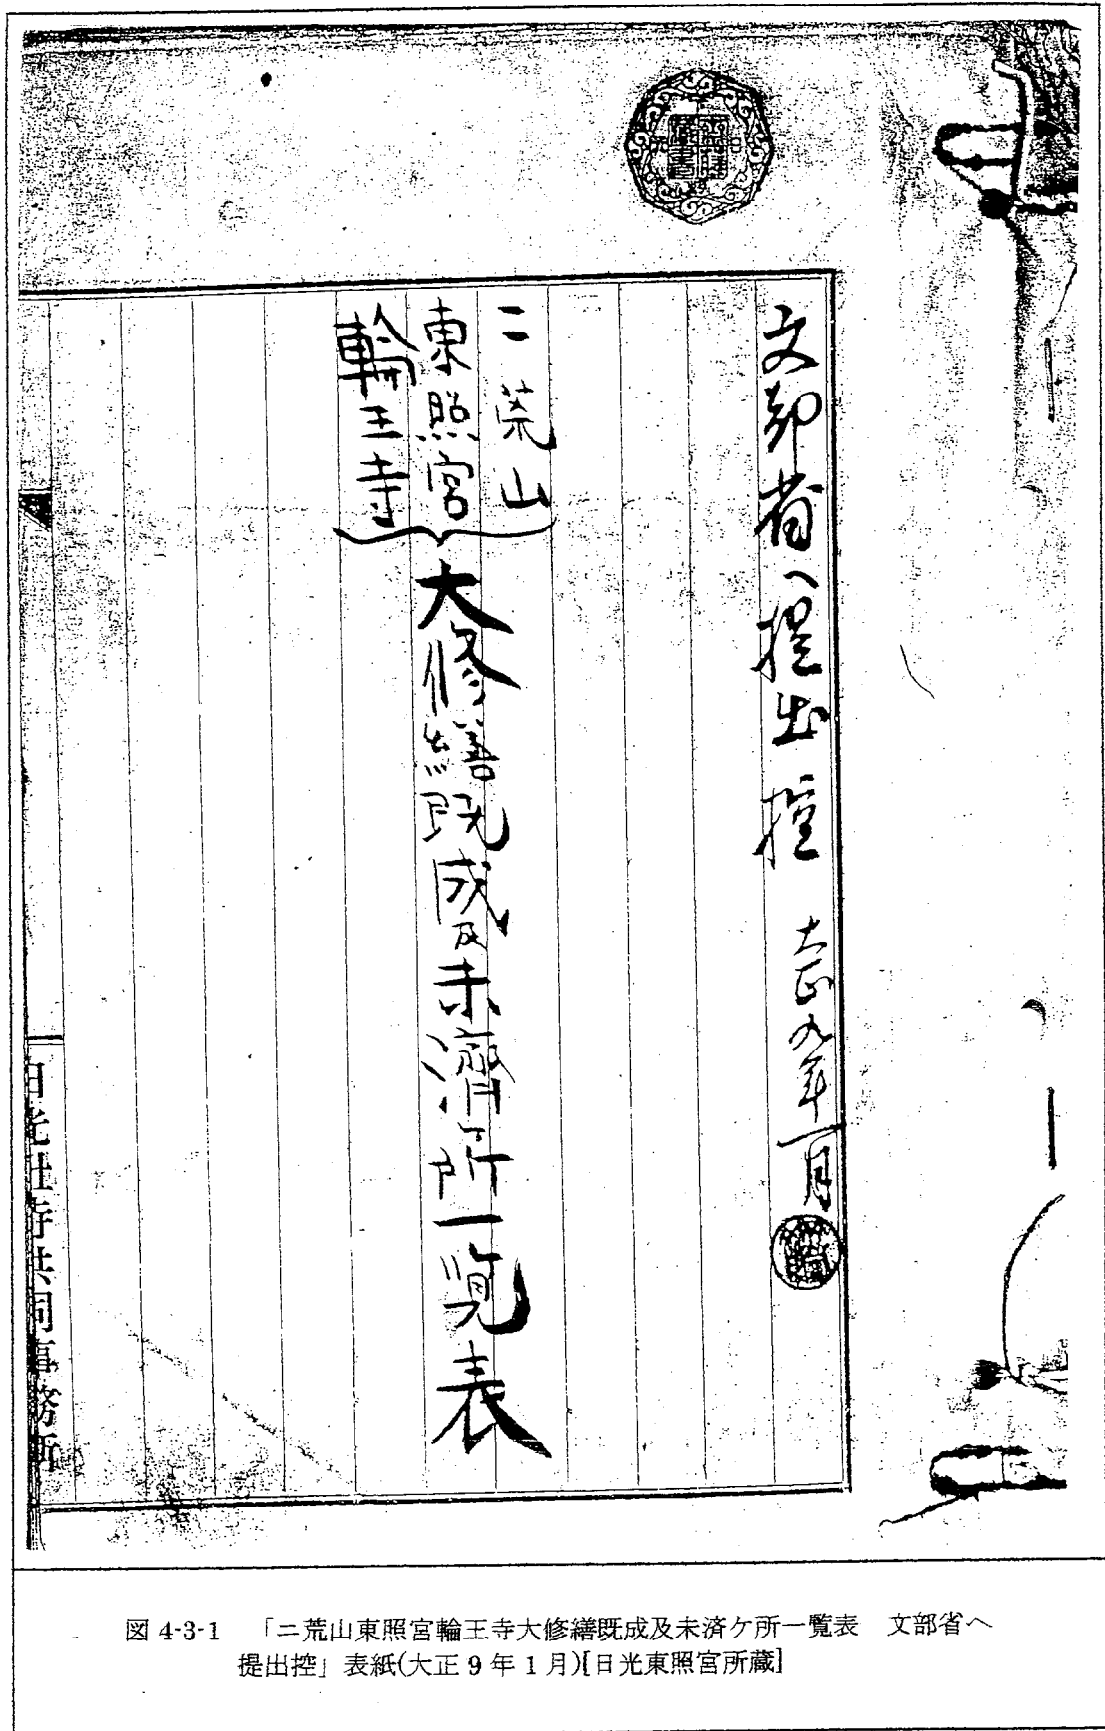 文部省へ提出控 大正九年一月
二荒山
東照宮
輪王寺
大修繕既成及未濟ケ所一覧表
日光社寺共同事務所
図 4-3-1 「二荒山東照宮輪王寺大修繕既成及未済ケ所一覧表 文部省へ
提出控」表紙(大正 9 年 1 月)[日光東照宮所蔵]